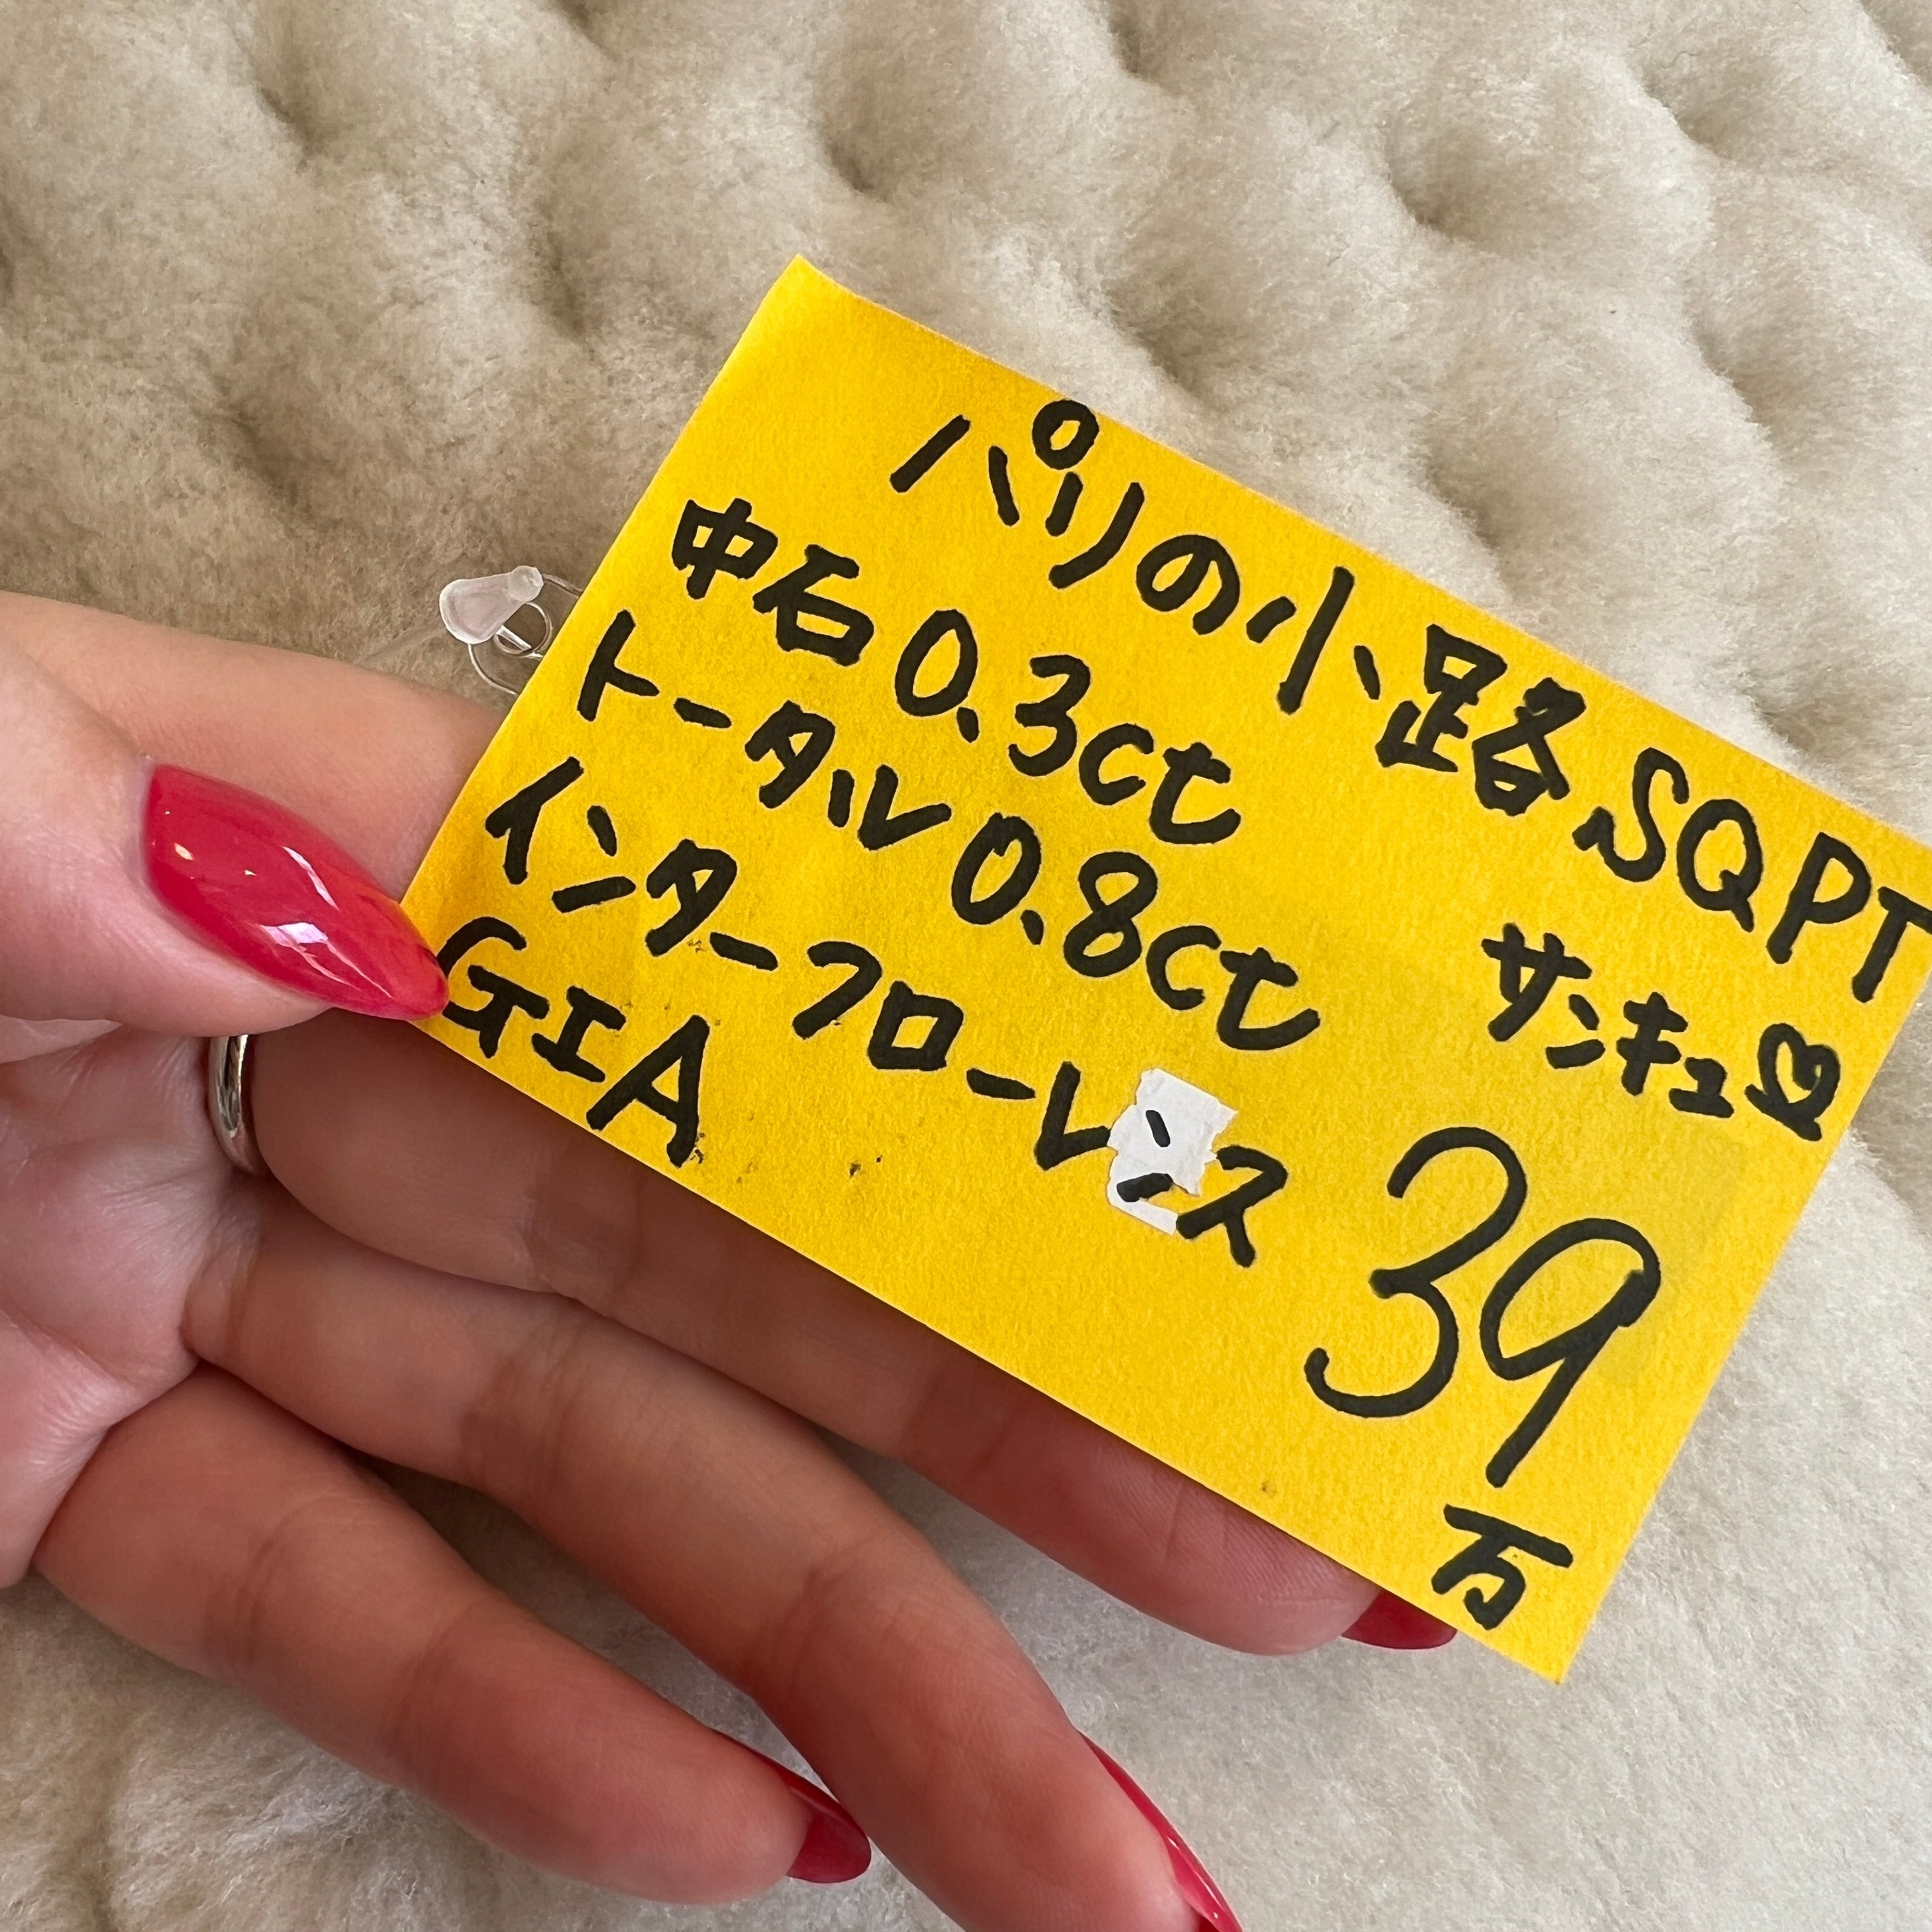 パリの小路SQPT
中石0.3ct
トータル0.8ct
インターフローレンス
GIA
サンキュ♡
39
万